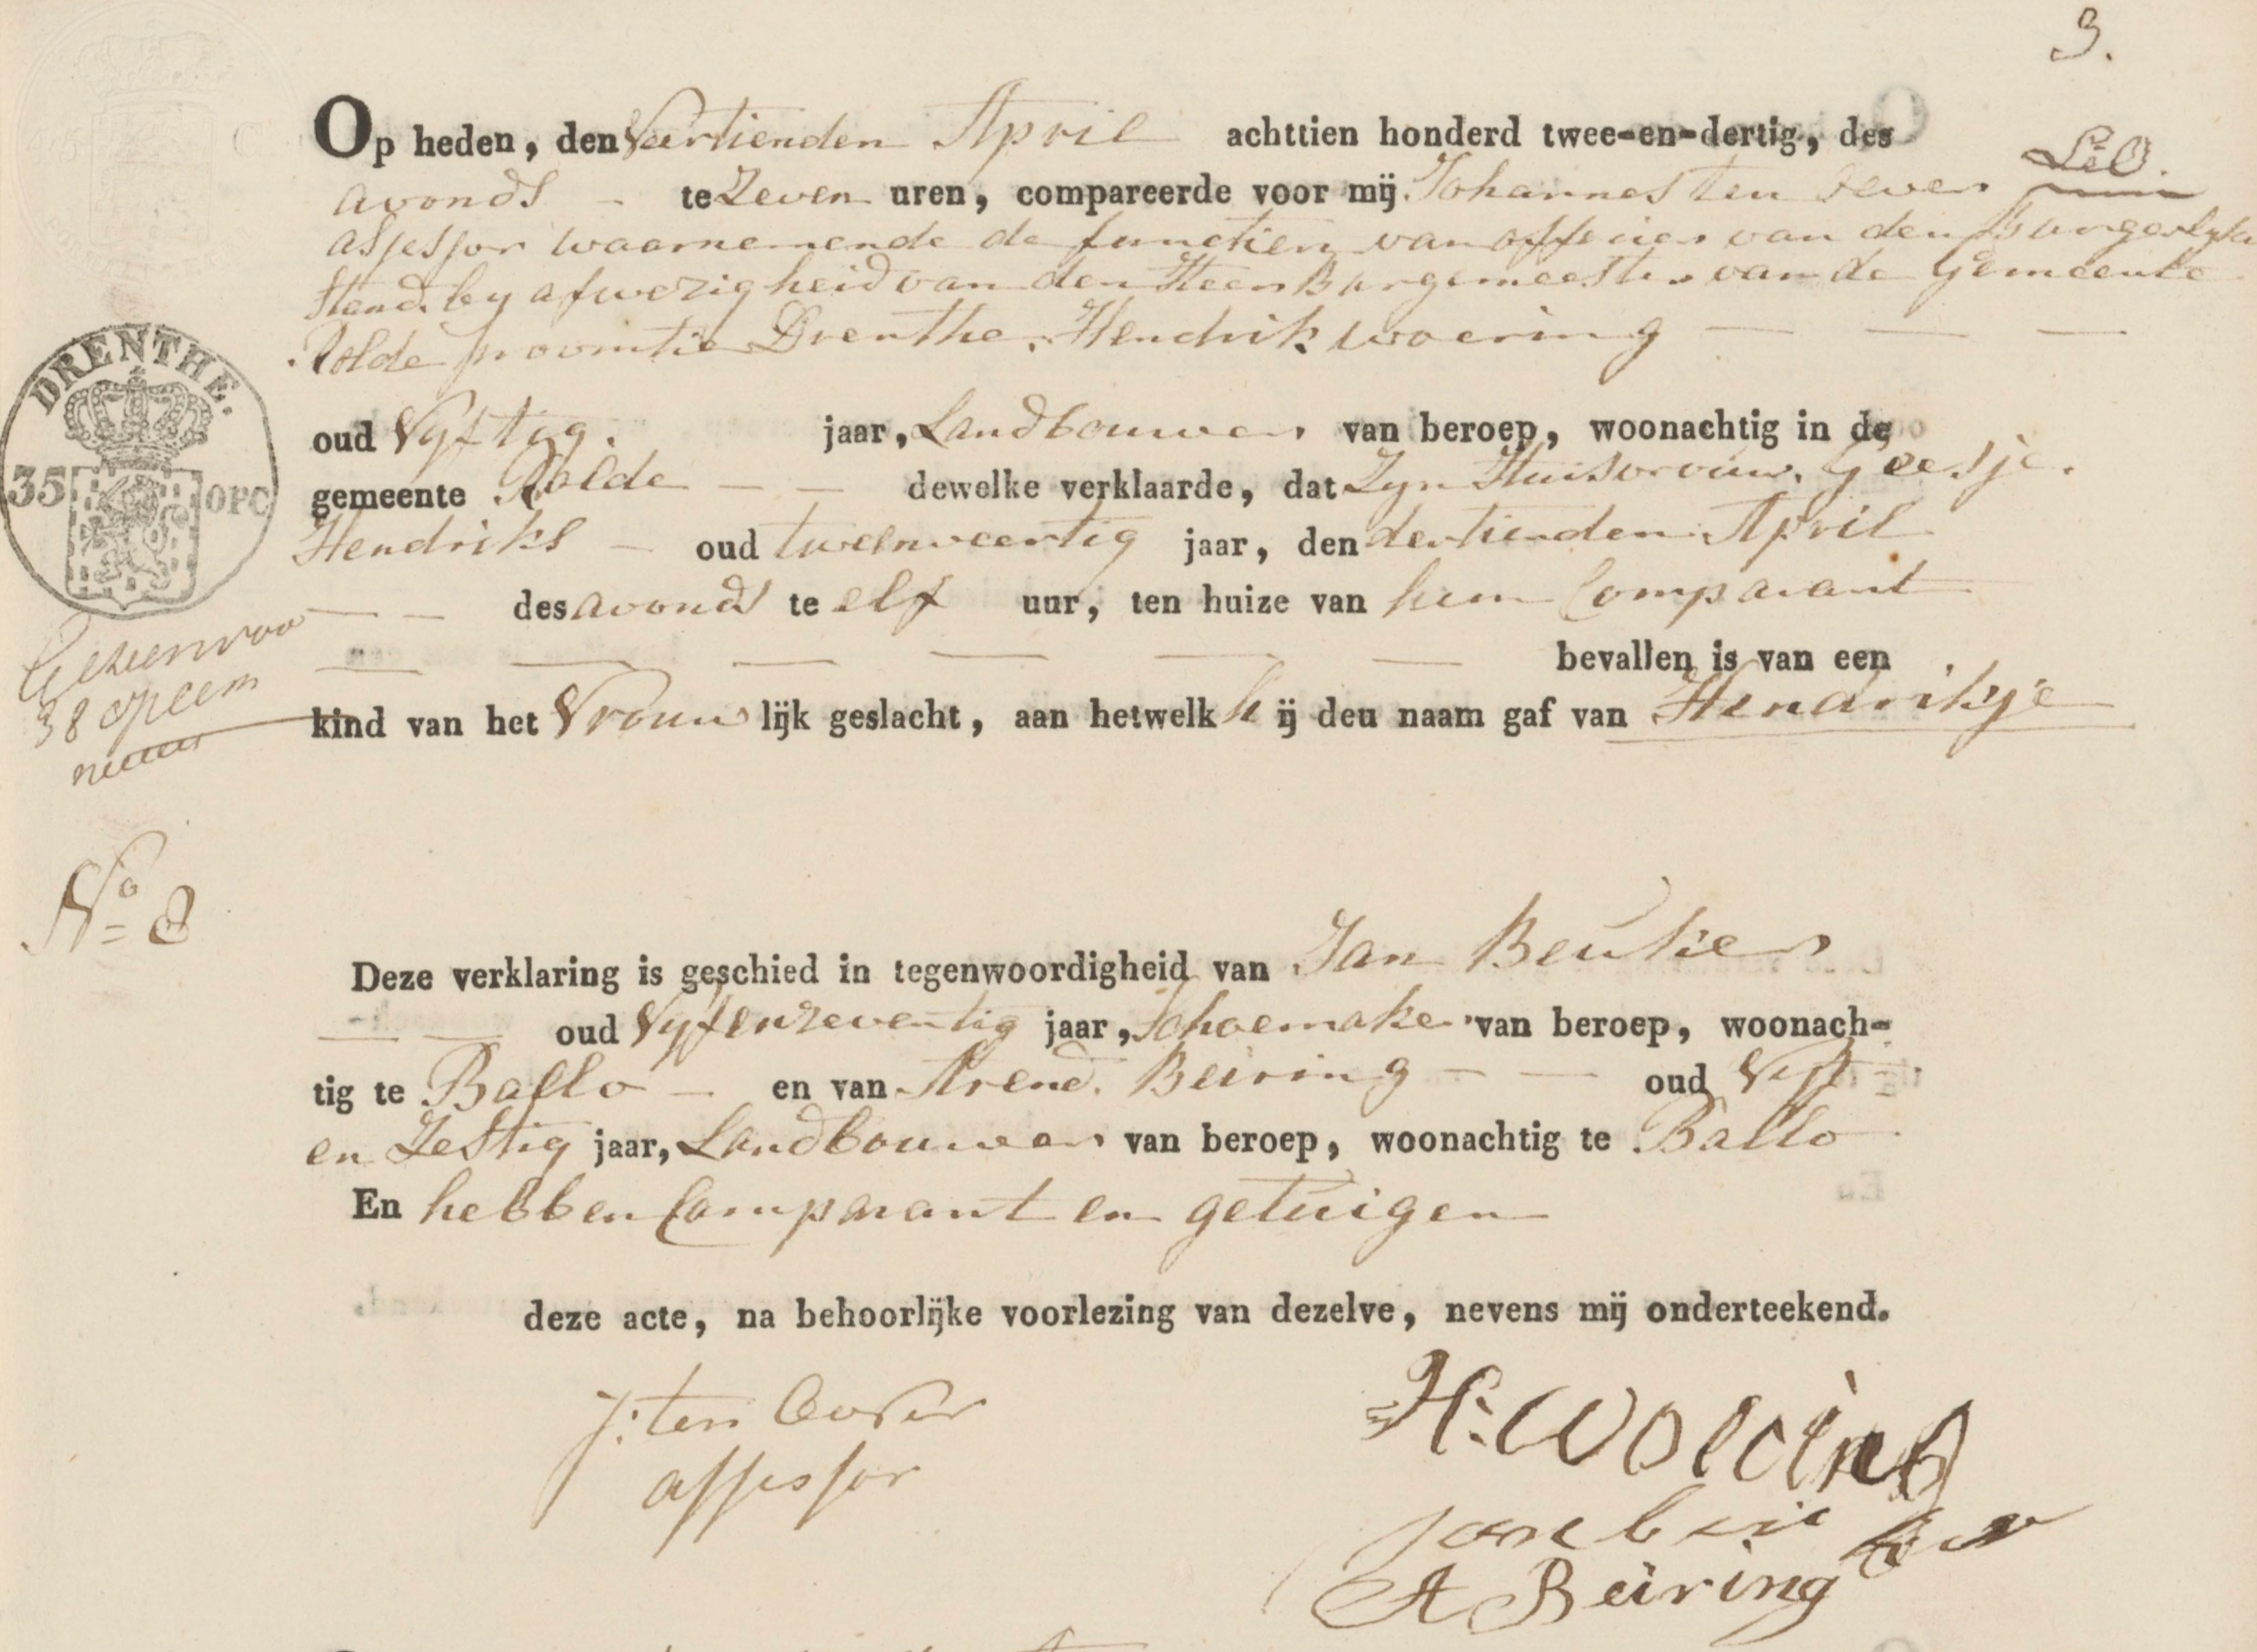 3.
Op heden, den Veertienden April achttien honderd twee-en-dertig, des
avonds te Zeven uren, compareerde voor mij Johannes ten Oever
assessor waarnemende de functien van officier van den Burgerlyke
Stand. by afwezigheid van den Heer Burgemeester van de Gemeente
Rolde provintie Drenthe. Hendrik woering
DRENTHE.
35 OPC
oud Vyftig. jaar, Landbouwer van beroep, woonachtig in de
gemeente Rolde dewelke verklaarde, dat Zyn Huisvrouw, Geesje
Hendriks oud tweenveertig jaar, den dertienden April
des avonds te elf uur, ten huize van hem Comparant
bevallen is van een
kind van het Vrouwlijk geslacht, aan hetwelk hij den naam gaf van Hendrikje
38 opcem
No 8
Deze verklaring is geschied in tegenwoordigheid van Jan Beuker
oud Vyfenzeventig jaar, Schoemaker van beroep, woonach-
tig te Ballo en van Arend Beiring oud Vyf
en Zestig jaar, Landbouwer van beroep, woonachtig te Ballo
En hebben Comparant en getuigen
deze acte, na behoorlijke voorlezing van dezelve, nevens mij onderteekend.
J: ten Oever
assessor
H: woering
Jan beuker
A Beiring